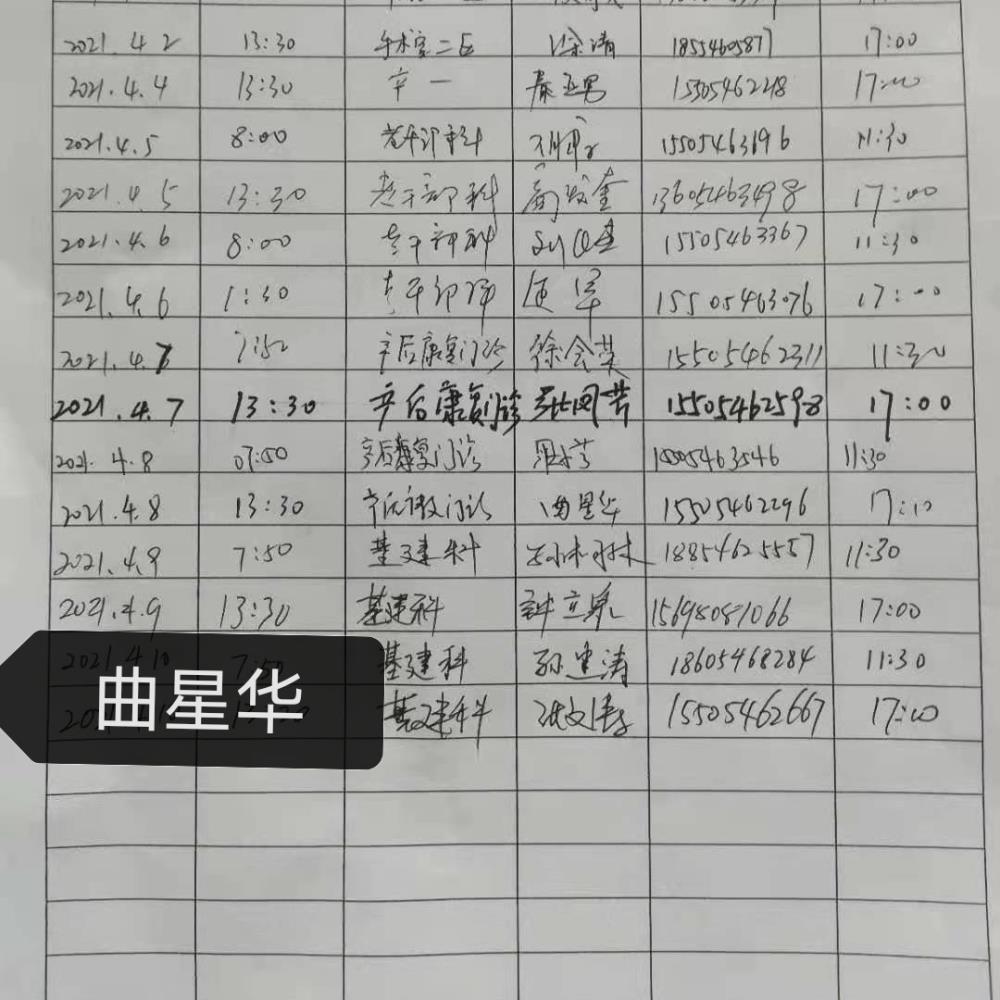 2021.4.2 13:30 手术室二区 徐清 18554605877 17:00
2021.4.4 13:30 卒一 秦亚男 15505462218 17:00
2021.4.5 8:00 老干部科 15505463196 11:30
2021.4.5 13:30 老干部科 13605463498 17:00
2021.4.6 8:00 老干部科 15505463367 11:30
2021.4.6 1:30 老干部科 15505463076 17:00
2021.4.7 7:50 卒后康复门诊 徐会英 15505462311 11:30
2021.4.7 13:30 卒后康复门诊 15505462598 17:00
2021.4.8 07:50 卒后康复门诊 15505463546 11:30
2021.4.8 13:30 卒后康复门诊 曲星华 15505462296 17:10
2021.4.9 7:50 基建科 18854625557 11:30
2021.4.9 13:30 基建科 15698081066 17:00
2021.4.10 7:50 基建科 孙建涛 18605468284 11:30
基建科 15505462667 17:00
曲星华